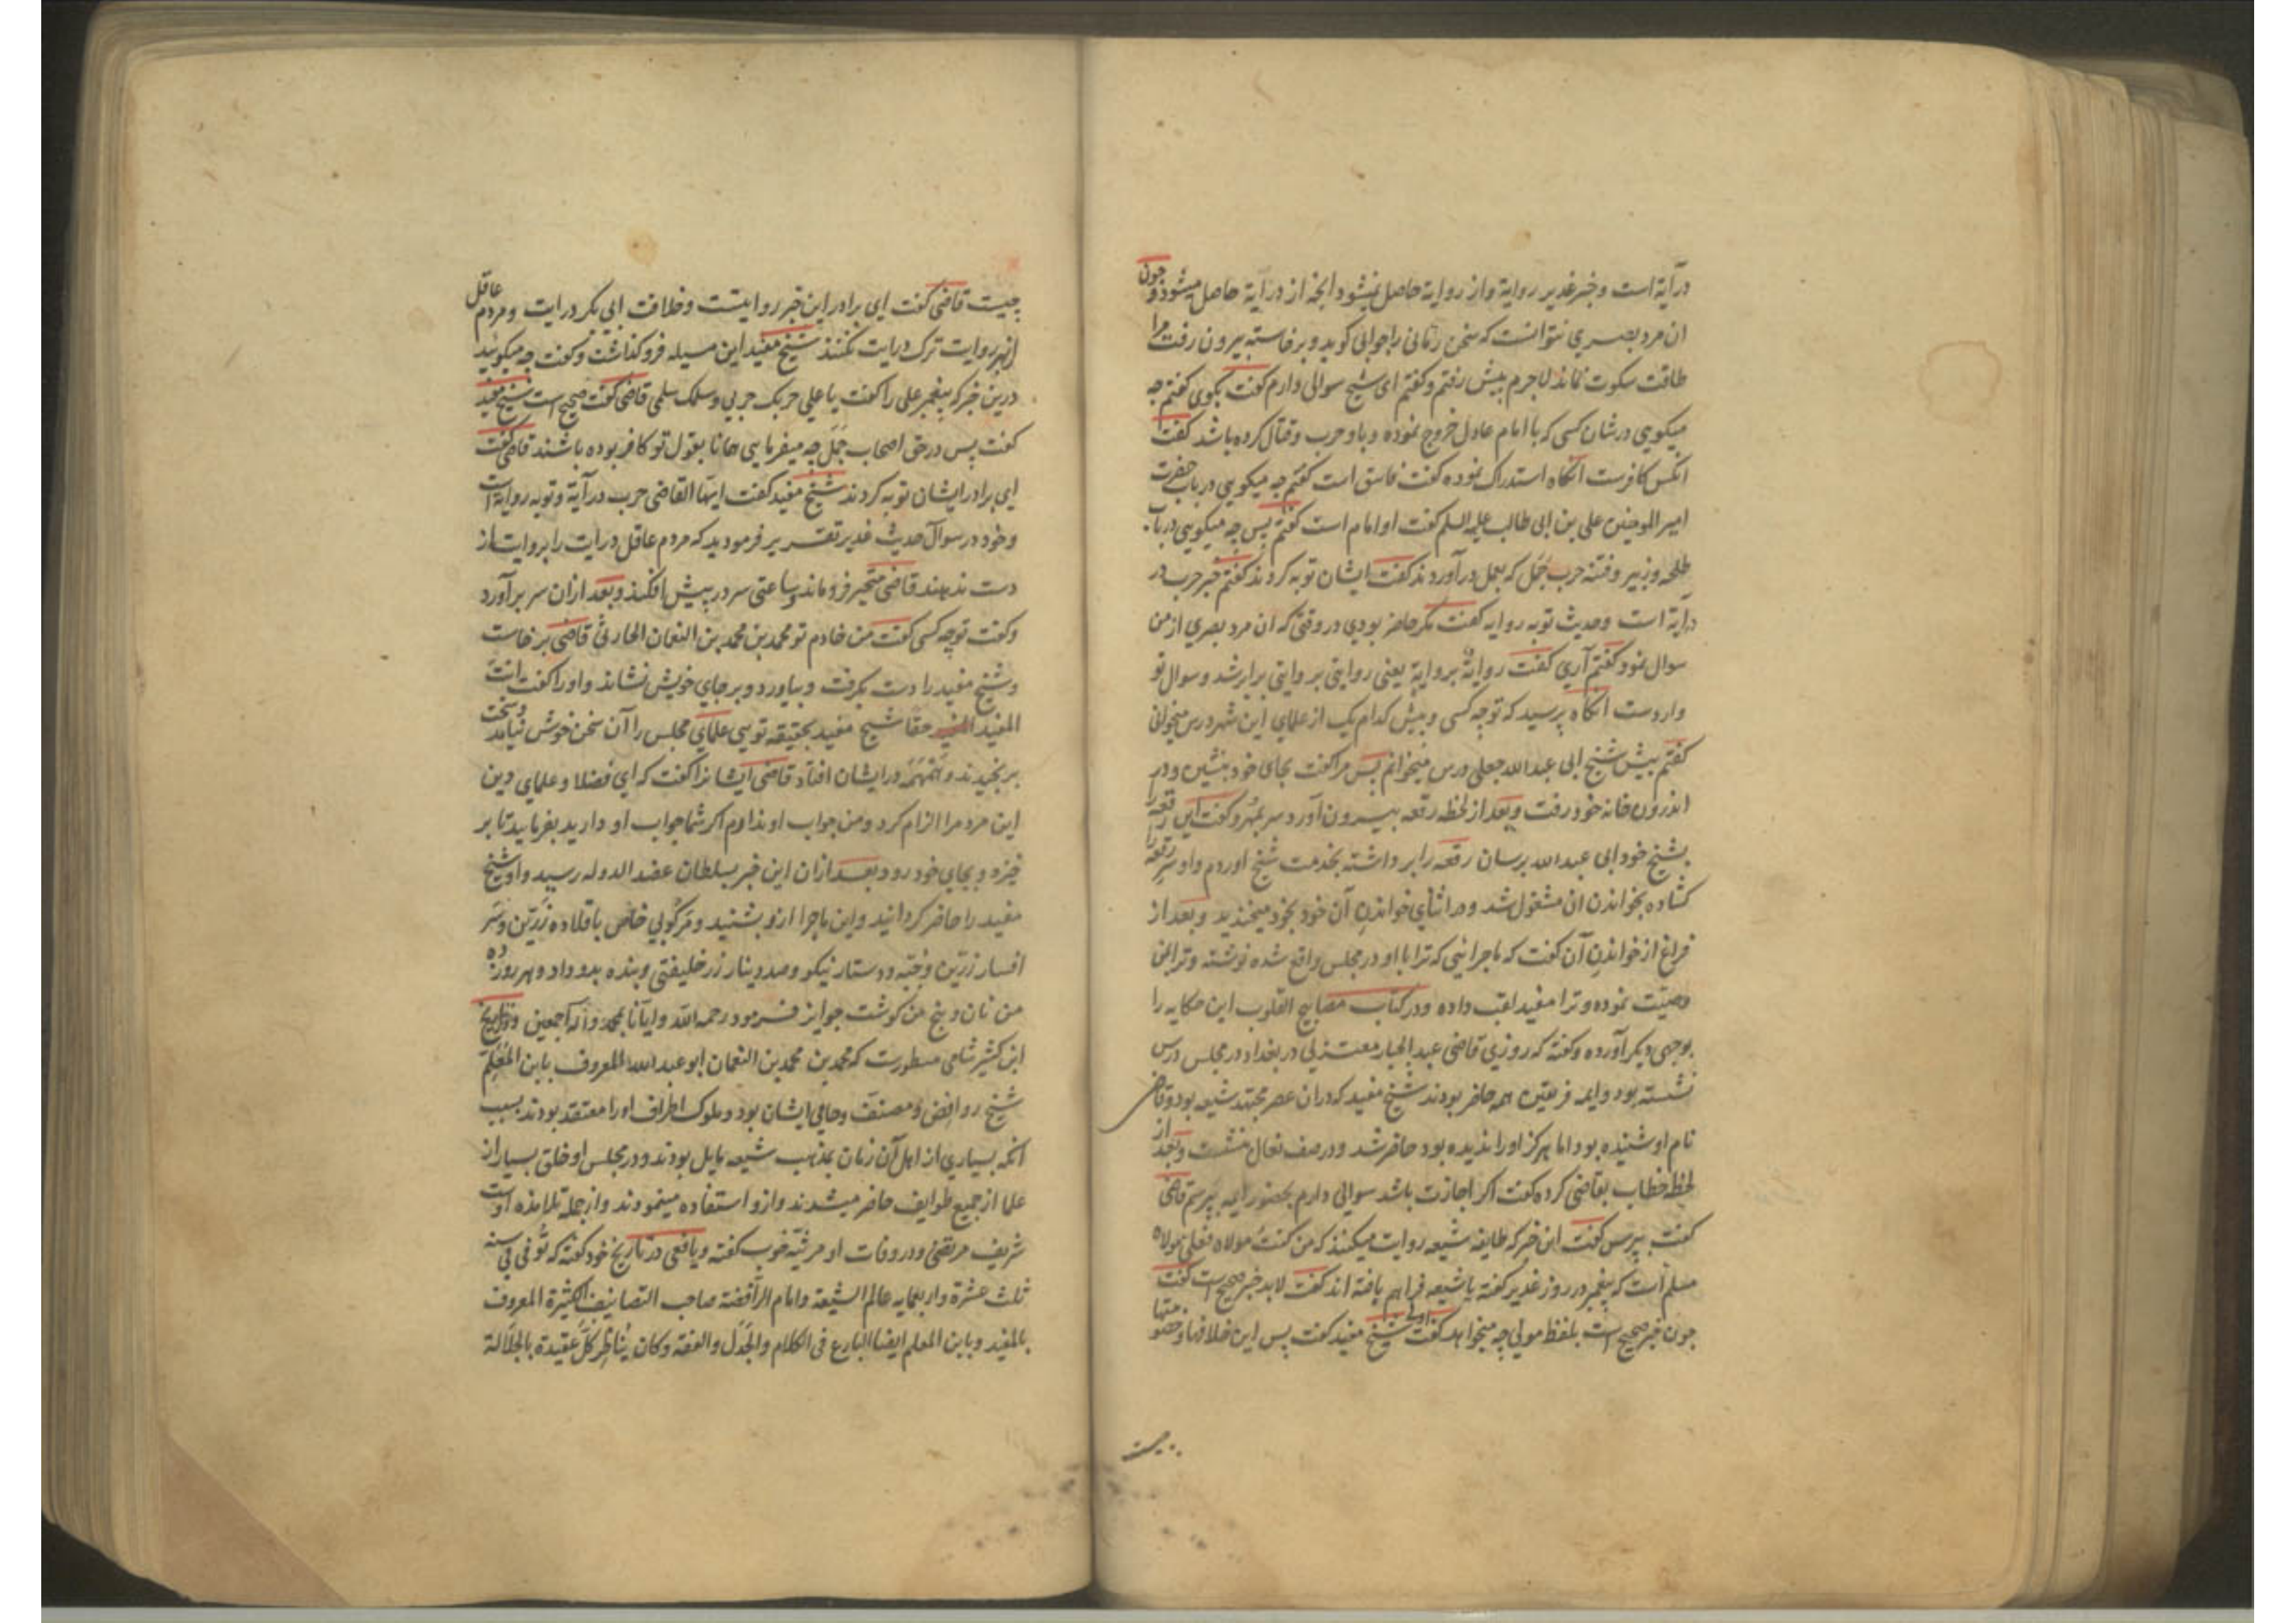 درآیة است و خبر غدیر روایة و از روایة حاصل نمیشود انچه از درآیة حاصل میشود و چون
ان مرد بصری نتوانست که سخن رمانی را جوابی کوید و برخاسته بیرون رفت مرا
طاقت سکوت نماند لاجرم پیش رفتم و کفتم ای شیخ سوالی دارم کفت بکوی کفتم چه
میکویی در شان کسی که با امام عادل خروج نموده و باو حرب و قتال کرده باشد کفت
انکس کافرست انکاه استدراک نموده کفت فاسق است کفتم چه میکویی در باب حضرت
امیر المومنین علی بن ابی طالب علیه السلم کفت او امام است کفتم پس چه میکویی در باب
طلحه و زبیر و فتنه حرب جَمَل که بعمل درآوردند کفت ایشان توبه کردند کفتم خبر حرب در
درایة است و حدیث توبه روایه کفت مکر حاضر بودی در وقتی که ان مرد بصری از من
سوال نمود کفتم آری کفت روایةً بروایة یعنی روایتی بروایتی برابر شد و سوال تو
واردست انکاه پرسید که تو چه کسی و پیش کدام یک از علمای این شهر درس میخوانی
کفتم پیش شیخ ابی عبد الله جعلی درس میخوانم پس مرا کفت بجای خود بنشین و در
اندرون خانه خود رفت و بعد از لحظه رقعه بیرون آورد سر بمُهر و کفت این رقعه را
بشیخ خود ابی عبد الله برسان رقعه را برداشته بخدمت شیخ اوردم و او سر رقعه را
کشاده بخواندن ان مشغول شد و در اثنای خواندن آن خود بخود میخندید و بعد از
فراغ از خواندن آن کفت که ماجرائیی که ترا با او در مجلس واقع شده نوشته و ترا بمن
وصیّت نموده و ترا مفید لقب داده و در کتاب مصابیح القلوب این حکایه را
بوجهی دیکر آورده و کفته که روزی قاضی عبد الجبار معتزلی در بغداد در مجلس درس
نشسته بود و ایمه فریقین همه حاضر بودند شیخ مفید که دران عصر مجتهد شیعه بود و قاضی
نام او شنیده بود اما هرکز او را ندیده بود حاضر شد و در صف نعال بنشست و بعد از
لحظه خطاب بقاضی کرده کفت اکر اجازت باشد سوالی دارم بحضور ایمه بپرسم قاضی
کفت بپرس کفت این خبر که طایفه شیعه روایت میکنند که من کنتُ مولاه فعلی مولاه
مسلم است که پیغمبر در روز غدیر کفته یا شیعه فراهم بافته اند کفت لابد خبر صحیح است کفت
چون خبر صحیح است بلفظ مولی چه میخواهد کفت اولی شیخ مفید کفت پس این خلافها و خصومتها
چیست
چیست قاضی کفت ای برادر این خبر روایتست و خلافت ابی بکر درایت و مردم عاقل
از بهر روایت ترک درایت نکنند شیخ مفید این مسیله فرو کذاشت و کفت چه میکویید
درین خبر که پیغمبر علی را کفت یا علی حربک حربی و سلمک سلمی قاضی کفت صحیح است شیخ مفید
کفت پس در حق اصحاب جَمَل چه میفرمایی همانا بقول تو کافر بوده باشند قاضی کفت
ای برادر ایشان توبه کردند شیخ مفید کفت ایها القاضی حرب درآیة و توبه روایة است
و خود در سوال حدیث غدیر تقریر فرمودید که مردم عاقل درایت را بروایت از
دست ندهند قاضی متحیر فروماند و ساعتی سر در پیش افکند و بعد ازان سر برآورد
و کفت تو چه کسی کفت من خادم تو محمد بن محمد بن النعمان الحارثی قاضی برخاست
و شیخ مفید را دست بکرفت و بیاورد و بر جای خویش نشاند و او را کفت انت
المفید حقا شیخ مفید بحقیقه تویی علمای مجلس را آن سخن خوش نیامد و سخت
برنجیدند و همهمه در ایشان افتاد قاضی ایشانرا کفت که ای فضلا و علمای دین
این مرد مرا الزام کرد و من جواب او ندارم اکر شما جواب او دارید بفرمایید تا بر
خیزد و بجای خود رود بعد ازان این خبر بسلطان عضد الدوله رسید و او شیخ
مفید را حاضر کردانید و این ماجرا ازو بشنید و مرکوبی خاص با قلاده زرّین و سَر
افسار زرّین و جُبّه و دستار نیکو و صد دینار زر خلیفتی و بنده بدو داد و هر روز ده
من نان و پنج من کوشت جوایز فرمود رحمه الله و ایانا بمحمد و آله اجمعین و در تاریخ
ابن کثیر شامی مسطورست که محمد بن محمد بن النعمان ابو عبد الله المعروف بابن المُعَلِّم
شیخ روافِض و مصنف و حامی ایشان بود و ملوک اطراف او را معتقد بودند بسبب
انکه بسیاری از اهل آن زمان بمذهب شیعه مایل بودند و در مجلس او خلق بسیار از
علما از جمیع طوایف حاضر میشدند و ازو استفاده مینمودند و از جمله تلامذه اوست
شریف مرتضی و در وفات او مرثیّه خوب کفته و یافعی در تاریخ خود کفته که تُوفی فی سنه
ثلث عشرة و اربعمایه عالم الشیعة و امام الرّافضة صاحب التصانیف الکثیرة المعروف
بالمفید و بابن المعلم ایضا البارع فی الکلام و الجَدَل و الفقه و کان یُناظِر کلّ عقیدة بالجلالة